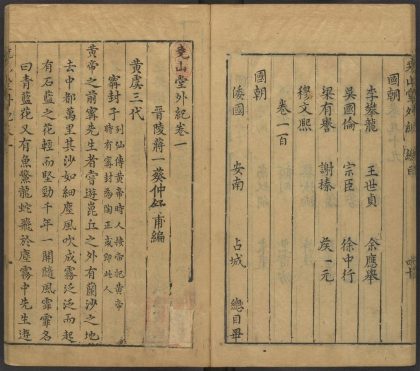 堯山堂外紀 總目
國朝
李攀龍 王世貞 余應舉
吳國倫 宗臣 徐中行
梁有譽 謝榛 矦一元
穆文熙
卷一百
國朝
倭國 安南 占城 總目畢
堯山堂外紀卷一
晉陵蔣一葵仲舒甫編
黃虞三代
甯封子
列仙傳黃帝時人按帝記黃帝
時有甯封為陶正或卽此人
黃帝之前甯先生者嘗遊崑丘之外有蘭沙之地
去中都萬里其沙如細塵風吹成霧泛泛而起
有石藍之花輕而堅勁千年一開隨風靡靡名
曰青藍花又有魚鱉龍蛇飛於塵霧中先生遊